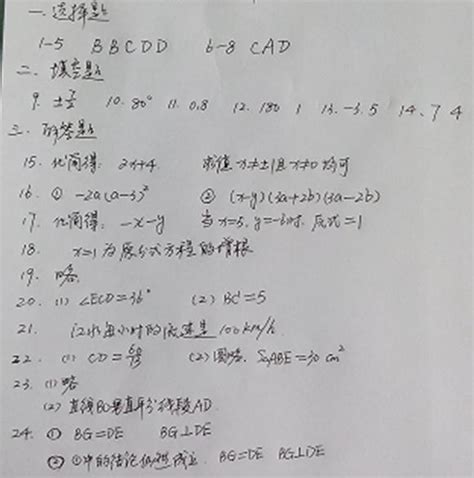 一、选择题
1-5 BBCDD 6-8 CAD
二、填空题
9. 10. 80° 11. 0.8 12. 180 1 13. -3.5 14. 7 4
三、解答题
15. 化简得: 2x+4. 求值 x≠±1且x≠0均可
16. ① -2a(a-3)² ② (x-y)(3a+2b)(3a-2b)
17. 化简得: -x-y 当x=5, y=-6时, 原式=1
18. x=1为原分式方程的增根
19. 略.
20. (1) ∠ECD=36° (2) BC=5
21. 江水每小时的流速是 100km/h.
22. (1) CD= (2) 图略. S△ABE=30 cm²
23. (1) 略
(2) 直线BC垂直平分线段AD.
24. ① BG=DE BG⊥DE
② ①中的结论仍然成立. BG=DE BG⊥DE